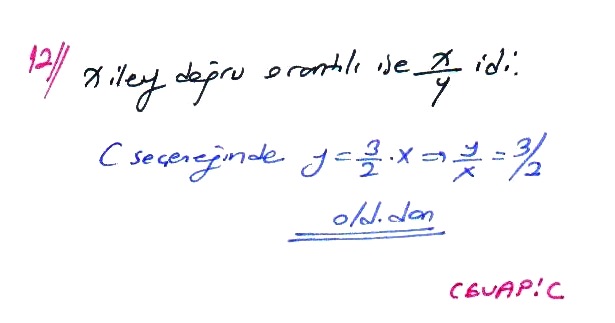 12// x ile y doğru orantılı ise x/y idi.
C seçeneğinde y = 3/2 · x ⇒ y/x = 3/2
old.dan
CEVAP: C